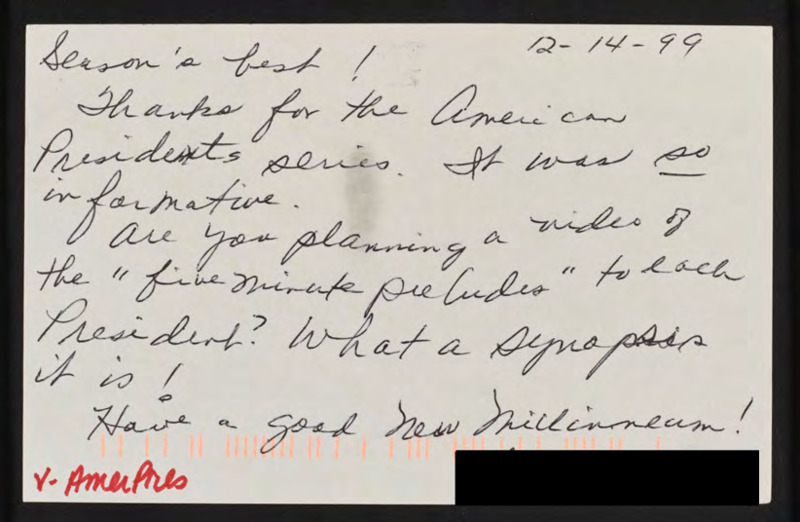 12-14-99
Season's best!
Thanks for the American
Presidents series. It was so
informative.
Are you planning a video of
the "five minute preludes" to each
President? What a synopsis
it is!
Have a good New Millinneum!
v- AmerPres